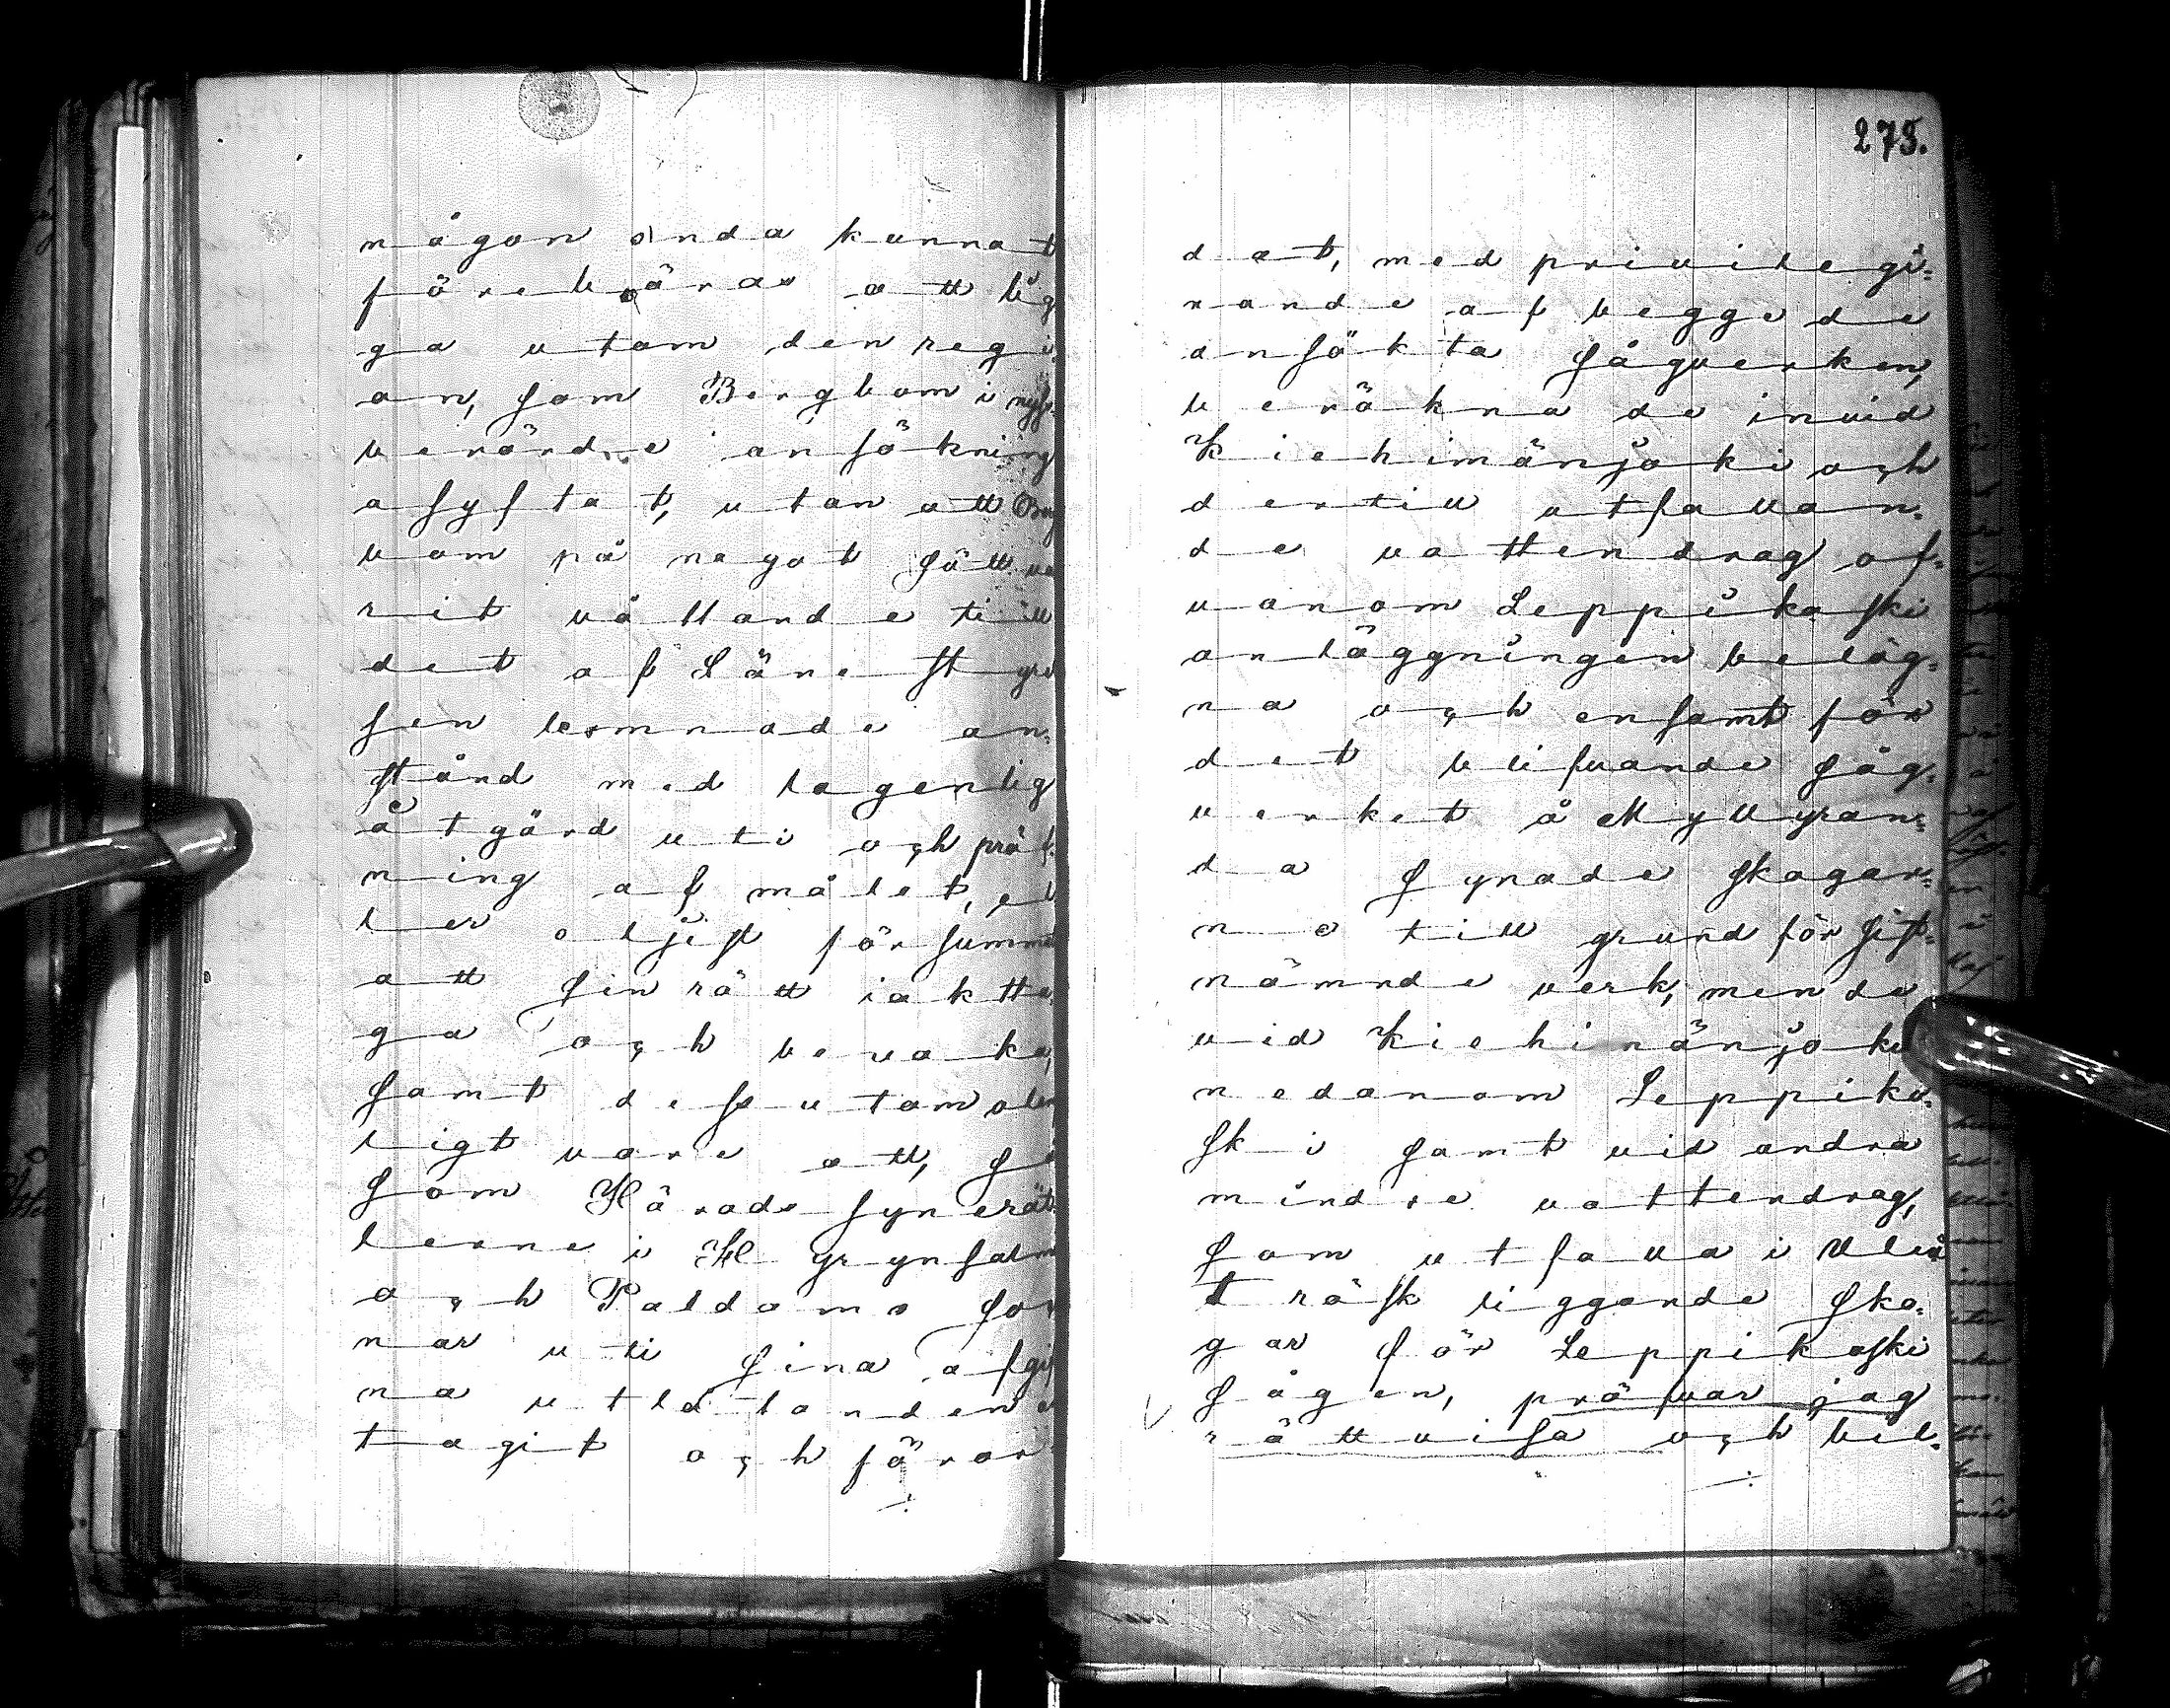 någon ända kunnat
förebäras att lig
ga utom den regi
on, som Bergbom i nyss
berörde ansökning
asyftat, utan att Berg
bom på något sätt va
rit vållande till
det af Läne Styrel
sen lemnade an=
stånd med lagenlig
åtgärd uti och pröf
ning af målet, el
ler oljest försummat
att sin rätt iaktta
ga och bevaka,
samt dessutom olem
ligt vore att, så
som Härads synerät
terne i Hyrynsalmi
och Paldamo sock
nar uti sina afgif
na utlåtanden
tagit och föror
275.
dat, med privilegi=
rande af begge de
ansökta sågverken,
beräkna de invid
Kiehimänjoki och
dertill utfallan=
de vattendrag of=
vanom Leppikoski
anläggningen beläg=
na och ensamt för
det blifvande såg=
verket å Myllyran=
da synade skogar=
ne till grund för sist=
nämnde verk, men de
vid Kiehimänjoki
nedanom Leppiko=
ski samt vid andra
mindre vattendrag,
som utfalla i Uleå
träsk liggande sko=
gar för Leppikoski
sågen, pröfvar jag
rättvisa och bil=